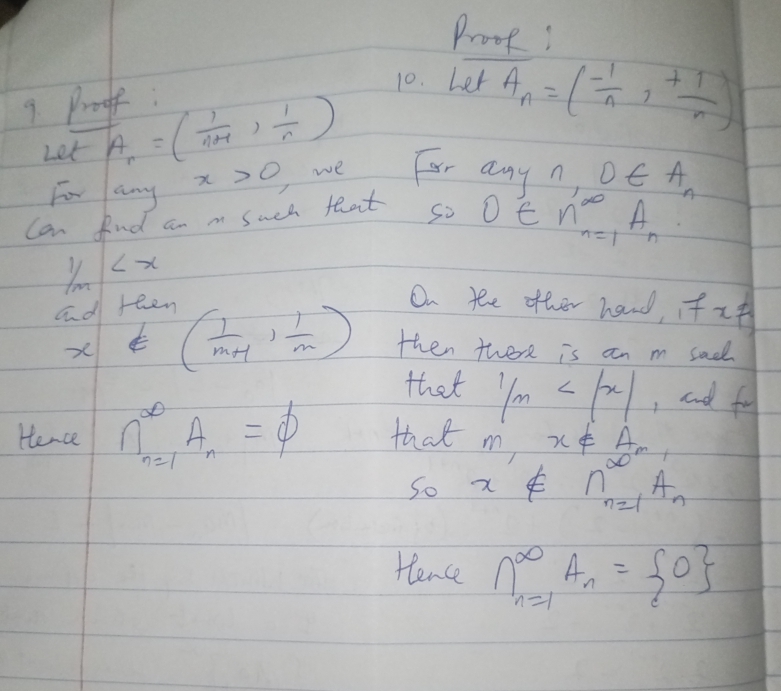 9. Proof :
Let Aₙ = (1/n+1 , 1/n)
For any x > 0, we
Can find an m such that
1/m < x
and then
x ∉ (1/m+1 , 1/m)
Hence ∩ₙ₌₁^∞ Aₙ = ϕ
Proof :
10. Let Aₙ = (-1/n , +1/n)
For any n, 0 ∈ Aₙ
so 0 ∈ ∩ₙ₌₁^∞ Aₙ.
On the other hand, if x ≠
then there is an m such
that 1/m < |x|, and
that m, x ∉ Aₘ,
so x ∉ ∩ₙ₌₁^∞ Aₙ
Hence ∩ₙ₌₁^∞ Aₙ = {0}